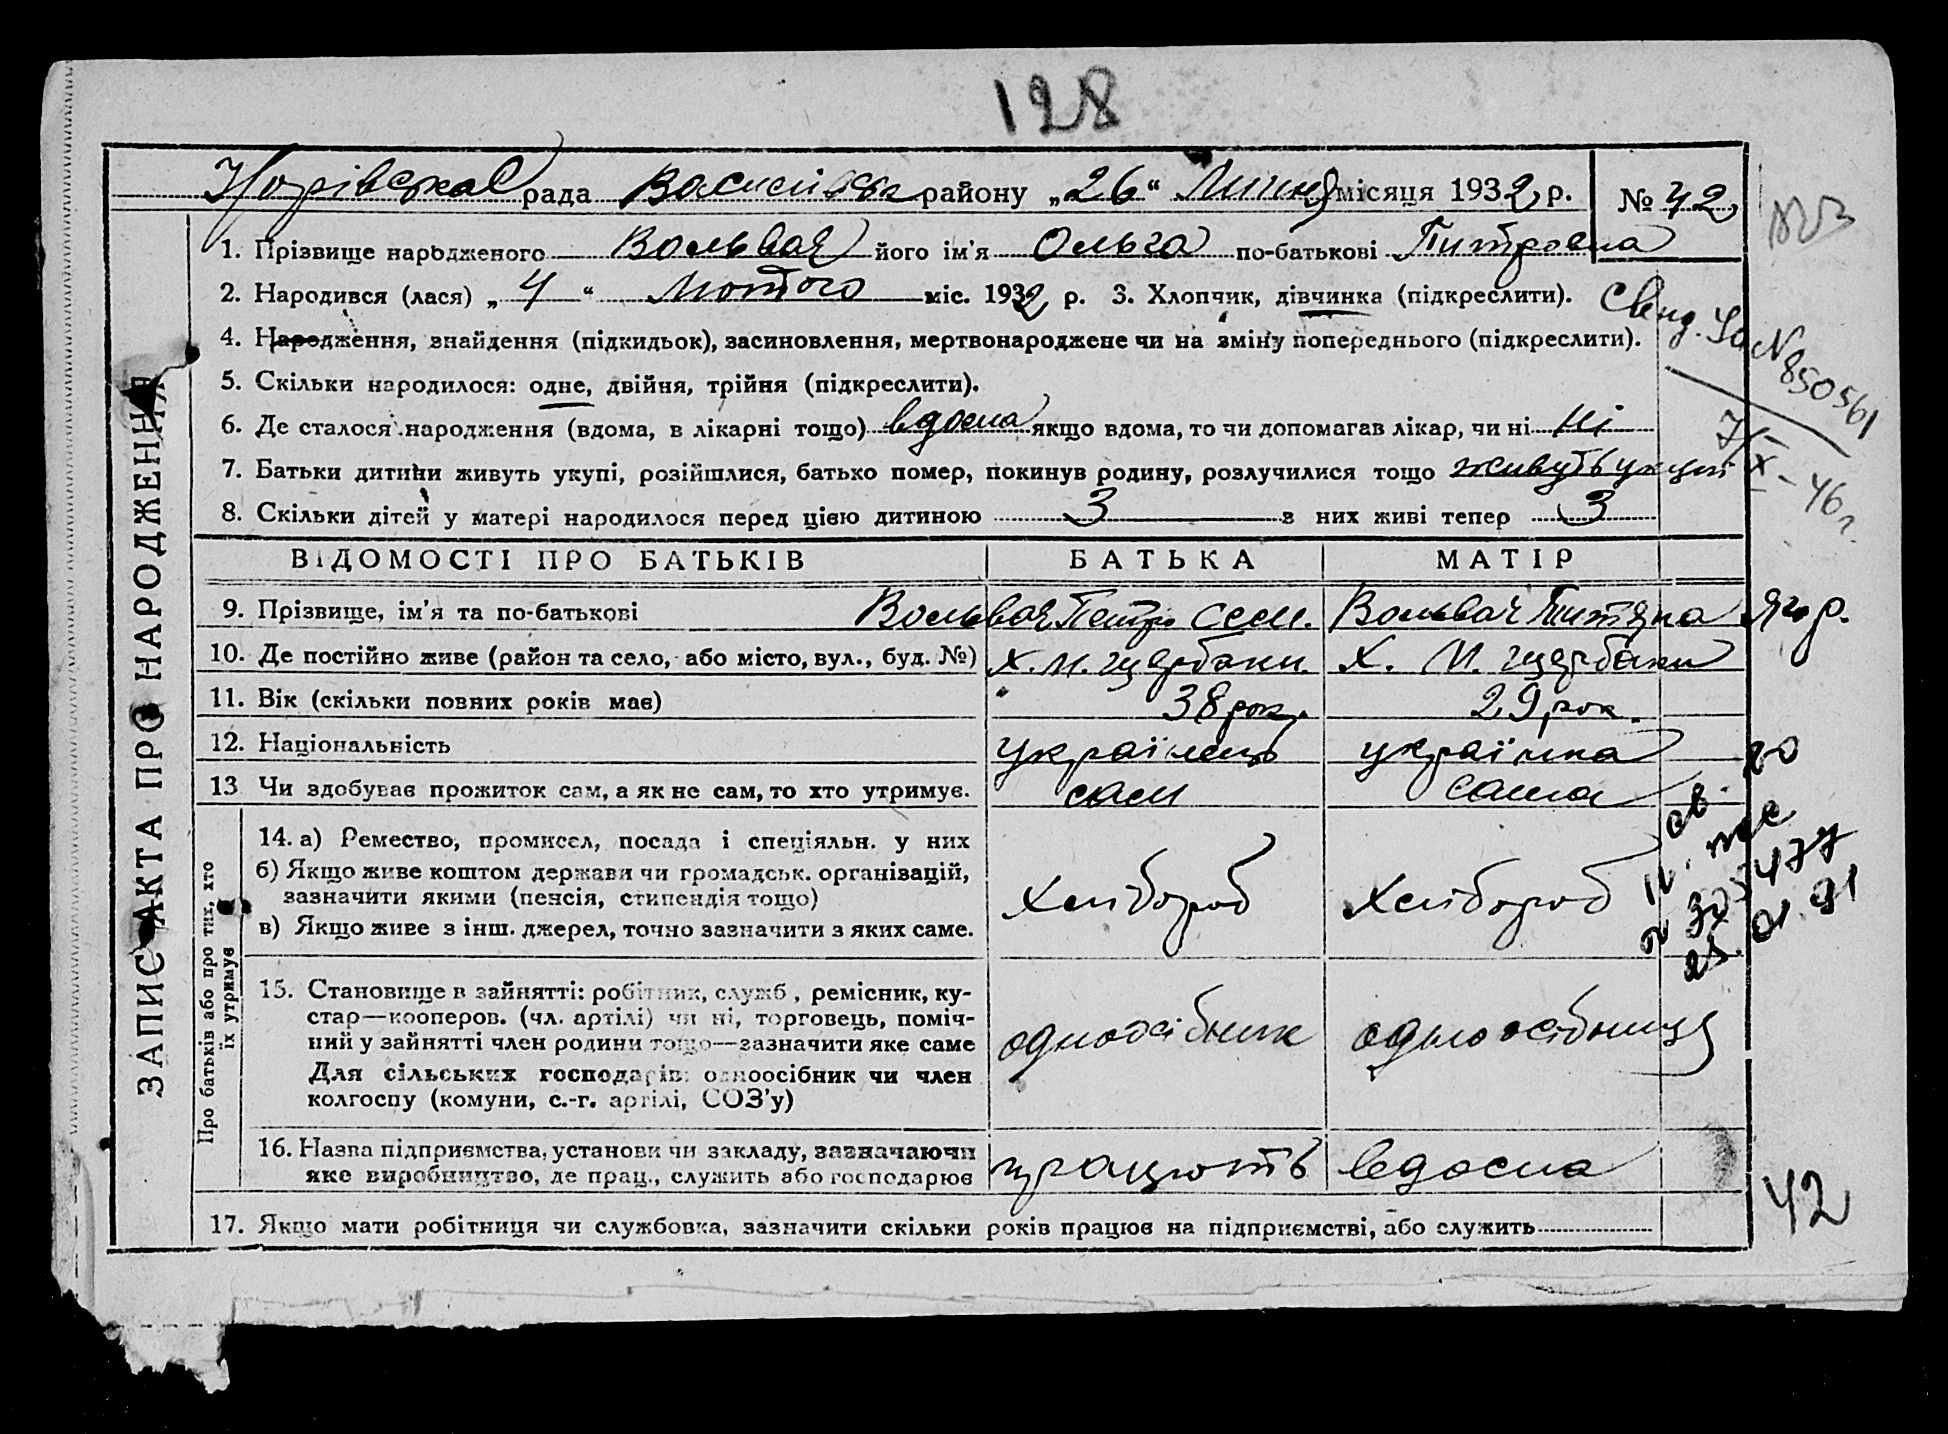 128
рада района району „26“ Липня місяця 1932 р. № 42
1. Прізвище народженого Вольвач його ім'я Ольга по-батькові Питровна
2. Народився (лася) „4“ Лютого міс. 1932 р. 3. Хлопчик, дівчинка (підкреслити).
4. Народження, знайдення (підкидьок), засиновлення, мертвонароджене чи на зміну попереднього (підкреслити).
5. Скільки народилося: одне, двійня, трійня (підкреслити).
6. Де сталося народження (вдома, в лікарні тощо) вдома якщо вдома, то чи допомагав лікар, чи ні ні
7. Батьки дитини живуть укупі, розійшлися, батько помер, покинув родину, розлучилися тощо живуть укупі
8. Скільки дітей у матері народилося перед цією дитиною 3 з них живі тепер 3
Свид. № 850561
X - 46 г.
ЗАПИС АКТА ПРО НАРОДЖЕННЯ
ВІДОМОСТІ ПРО БАТЬКІВ БАТЬКА МАТІР
9. Прізвище, ім'я та по-батькові Вольвач Петро Сем. Вольвач Титяна
10. Де постійно живе (район та село, або місто, вул., буд. №) Х. М. Щербаки Х. М. Щербаки
11. Вік (скільки повних років має) 38 рок. 29 рок.
12. Національність українець українка
13 Чи здобував прожиток сам, а як не сам, то хто утримує. сам сама
Про батьків або про тих, хто їх утримує
14. а) Ремество, промисел, посада і спеціяльн. у них
б) Якщо живе коштом держави чи громадськ. організацій,
зазначити якими (пенсія, стипендія тощо)
в) Якщо живе з інш. джерел, точно зазначити з яких саме.
хлібороб хлібороб
15. Становище в зайнятті: робітник, служб., ремісник, ку-
стар—кооперов. (чл. артілі) чи ні, торговець, поміч-
ний у зайнятті член родини тощо—зазначити яке саме
Для сільських господарів: одноосібник чи член
колгоспу (комуни, с.-г. артілі, СОЗ'у)
одноосібник одноосібниця
16. Назва підприємства, установи чи закладу, зазначаючи
яке виробництво, де прац., служить або господарює
працюють вдома
17. Якщо мати робітниця чи службовка, зазначити скільки років працює на підприємстві, або служить
42